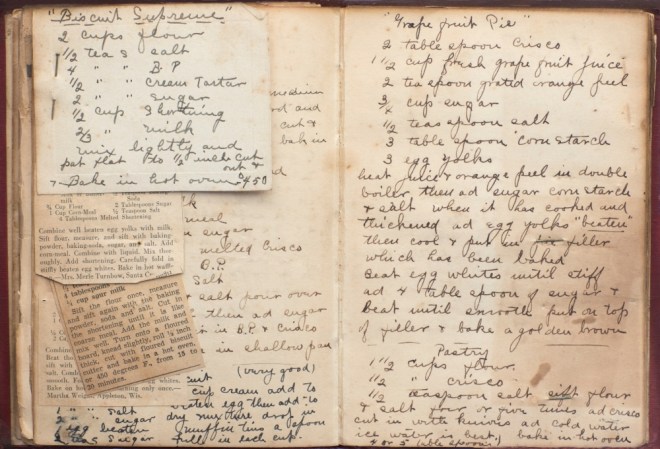 "Biscuit Supreme"
2 cups flour
1/2 tea S salt
4 " " B.P
1/2 " " cream Tartar
2 " " sugar
1/2 cup Shortning
2/3 " milk
mix lightly and
pat flat to 1/2 inch cut
out &
Bake in hot oven 450
milk
Soda
3/4 Cup Flour
2 Tablespoons Sugar
1 Cup Corn-Meal
1/2 Teaspoon Salt
Tablespoons Melted Shortening
Combine well beaten egg yolks with milk.
Sift flour, measure, and sift with baking
powder, baking-soda, sugar, and salt. Add
corn-meal. Combine with liquid. Mix thor-
oughly. Add shortening. Carefully fold in
stiffly beaten egg whites. Bake in hot waffle
—Mrs. Merle Turnbow, Santa
4 tablespoons
1/2 cup sour milk
Sift the flour once, measure
and sift again with the baking
powder, soda and salt. Cut in
the shortening until it is like
coarse meal. Add the milk and
mix well. Turn onto a floured
board, knead slightly, roll 1/2 inch
thick, cut with floured biscuit
cutter and bake in a hot oven,
or 450 degrees F., from 15 to
20 minutes.
Combine
Beat
smooth. Fo
egg whites.
Bake on ho
only once.—
Martha We
Appleton, Wis.
medium
and
cut &
bake in
meal
sugar
melted Crisco
B.P.
Salt
salt pour over
then ad sugar
in B.P. & Crisco
in shallow pan
(very good)
cup cream add to
beaten egg then add to
dry mixture drop in
muffin tins a spoon
full in each cup.
1 " " salt
2 " " sugar
1 egg beaten
2 teas sugar
"Grape fruit Pie"
2 table spoon Crisco
1 1/2 cup fresh grape fruit juice
2 tea spoon grated orange peel
3/4 cup sugar
1/2 teas spoon salt
3 table spoon corn starch
3 egg yolks
heat juice & orange peel in double
boiler then ad sugar corn starch
& salt when it has cooked and
thickened ad egg yolks "beaten"
then cool & put in filler
which has been baked
Beat egg whites until stiff
ad 4 table spoon of sugar &
Beat until smooth put on top
of filler & bake a golden brown
Pastry
1 1/2 cups flour
1/2 " crisco
1/2 teaspoon salt sift flour
& salt four or five times ad crisco
cut in with knives ad cold water
ice water is best, bake in hot oven
4 or 5 (table spoons)